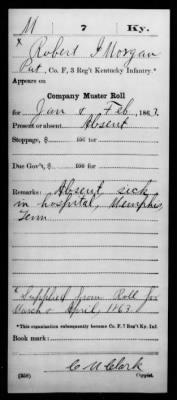 M 7 Ky.
Robert J Morgan
Pvt, Co. F, 3 Reg't Kentucky Infantry.*
Appears on
Company Muster Roll
for Jan & Feb, 1863.
Present or absent Absent
Stoppage, $ 100 for
Due Gov't, $ 100 for
Remarks: Absent sick
in hospital, Memphis
Tenn
* Supplied from Roll for
March & April, 1863.
*This organization subsequently became Co. F, 7 Reg't Ky. Inf.
Book mark:
C N Clark
(358) Copyist.